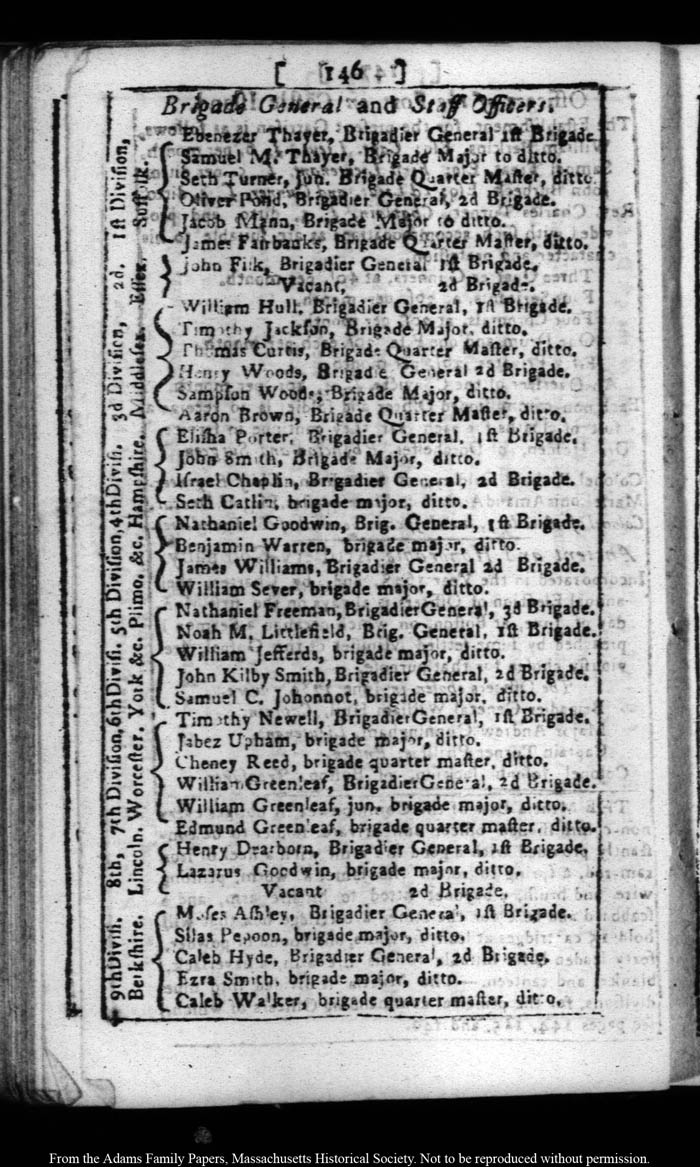 [ 146 ]
Brigade General and Staff Officers.
1st Division, Suffolk.
Ebenezer Thayer, Brigadier General 1st Brigade
Samuel M. Thayer, Brigade Major to ditto.
Seth Turner, Jun. Brigade Quarter Master, ditto
Oliver Pond, Brigadier General, 2d Brigade.
Jacob Mann, Brigade Major to ditto.
James Fairbanks, Brigade Quarter Master, ditto.
2d. Essex.
John Fisk, Brigadier General 1st Brigade.
Vacant, 2d Brigade.
3d Division, Middlesex.
William Hull, Brigadier General, 1st Brigade.
Timothy Jackson, Brigade Major, ditto.
Thomas Curtis, Brigade Quarter Master, ditto.
Henry Woods, Brigadie General 2d Brigade.
Sampson Woods, Brigade Major, ditto.
Aaron Brown, Brigade Quarter Master, ditto.
4th Divisi. Hampshire.
Elisha Porter, Brigadier General, 1st Brigade.
John Smith, Brigade Major, ditto.
Israel Chaplin, Brigadier General, 2d Brigade.
Seth Catlin, brigade major, ditto.
5th Division, Plimo. &c.
Nathaniel Goodwin, Brig. General, 1st Brigade.
Benjamin Warren, brigade major, ditto.
James Williams, Brigadier General 2d Brigade.
William Sever, brigade major, ditto.
Nathaniel Freeman, Brigadier General, 3d Brigade.
6th Divisi. York &c.
Noah M. Littlefield, Brig. General, 1st Brigade.
William Jefferds, brigade major, ditto.
John Kilby Smith, Brigadier General, 2d Brigade.
Samuel C. Johonnot, brigade major, ditto.
7th Division, Worcester.
Timothy Newell, Brigadier General, 1st Brigade.
Jabez Upham, brigade major, ditto.
Cheney Reed, brigade quarter master, ditto.
William Greenleaf, Brigadier General, 2d Brigade.
William Greenleaf, jun. brigade major, ditto.
Edmund Greenleaf, brigade quarter master, ditto.
8th, Lincoln.
Henry Dearborn, Brigadier General, 1st Brigade.
Lazarus Goodwin, brigade major, ditto,
Vacant 2d Brigade.
9th Divisi. Berkshire.
Moses Ashley, Brigadier General, 1st Brigade.
Silas Pepoon, brigade major, ditto.
Caleb Hyde, Brigadier General, 2d Brigade,
Ezra Smith, brigade major, ditto.
Caleb Walker, brigade quarter master, ditto.
From the Adams Family Papers, Massachusetts Historical Society. Not to be reproduced without permission.